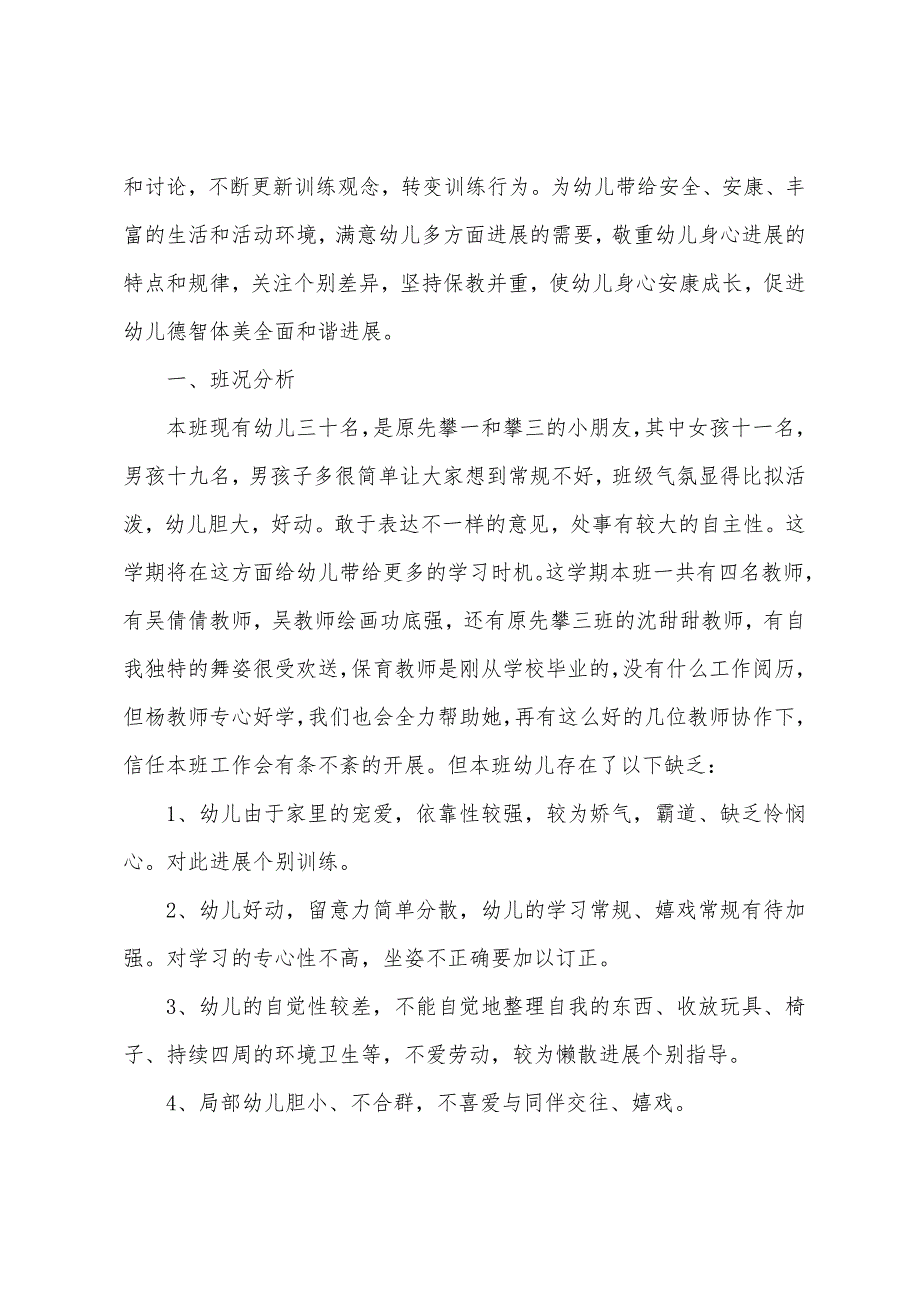 和讨论，不断更新训练观念，转变训练行为。为幼儿带给安全、安康、丰
富的生活和活动环境，满意幼儿多方面进展的需要，敬重幼儿身心进展的
特点和规律，关注个别差异，坚持保教并重，使幼儿身心安康成长，促进
幼儿德智体美全面和谐进展。
一、班况分析
本班现有幼儿三十名，是原先攀一和攀三的小朋友，其中女孩十一名，
男孩十九名，男孩子多很简单让大家想到常规不好，班级气氛显得比拟活
泼，幼儿胆大，好动。敢于表达不一样的意见，处事有较大的自主性。这
学期将在这方面给幼儿带给更多的学习时机。这学期本班一共有四名教师，
有吴倩倩教师，吴教师绘画功底强，还有原先攀三班的沈甜甜教师，有自
我独特的舞姿很受欢送，保育教师是刚从学校毕业的，没有什么工作阅历，
但杨教师专心好学，我们也会全力帮助她，再有这么好的几位教师协作下，
信任本班工作会有条不紊的开展。但本班幼儿存在了以下缺乏：
1、幼儿由于家里的宠爱，依靠性较强，较为娇气，霸道、缺乏怜悯
心。对此进展个别训练。
2、幼儿好动，留意力简单分散，幼儿的学习常规、嬉戏常规有待加
强。对学习的专心性不高，坐姿不正确要加以订正。
3、幼儿的自觉性较差，不能自觉地整理自我的东西、收放玩具、椅
子、持续四周的环境卫生等，不爱劳动，较为懒散进展个别指导。
4、局部幼儿胆小、不合群，不喜爱与同伴交往、嬉戏。